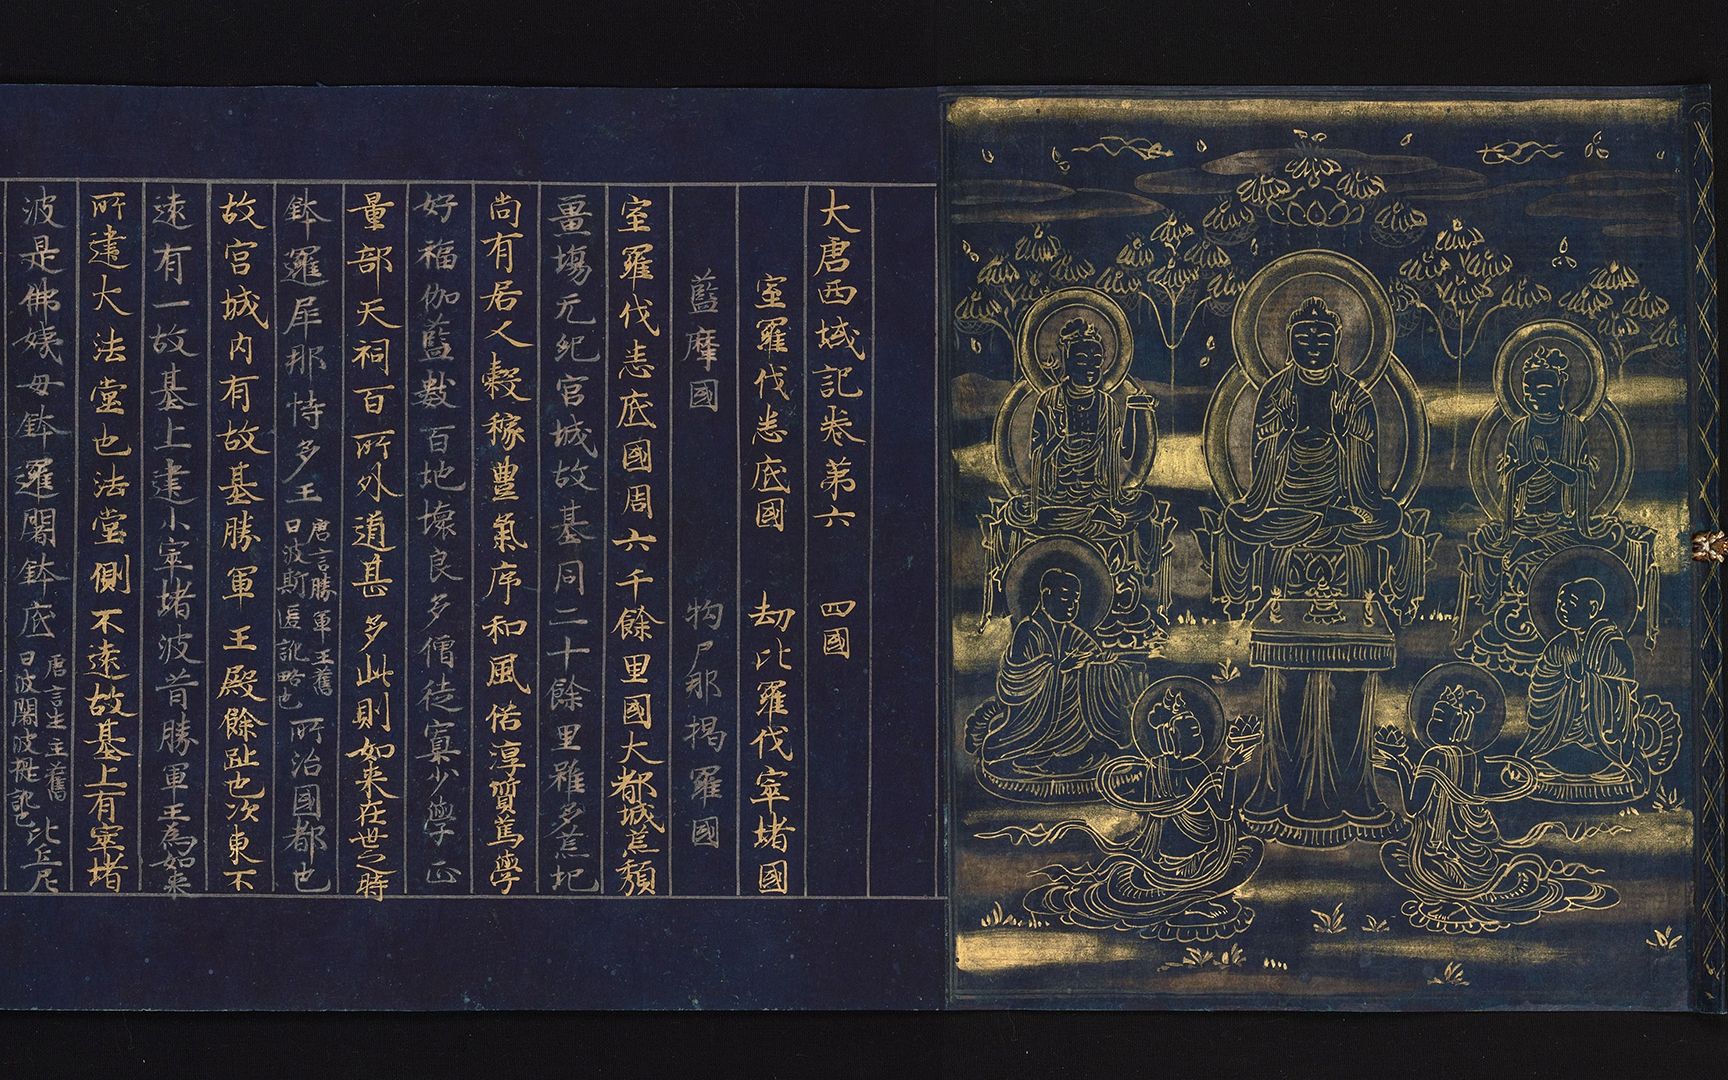 大唐西域記卷第六　四國
室羅伐悉底國　劫比羅伐窣堵國
藍摩國　拘尸那揭羅國
室羅伐悉底國周六千餘里國大都城荒頹
畺埸无紀宮城故基同二十餘里雖多荒圮
尚有居人穀稼豊氣序和風俗淳質篤學
好福伽藍數百圮壞良多僧徒寡少學正
量部天祠百所外道甚多此則如來在世之時
鉢邏犀那恃多王唐言勝軍王舊曰波斯匿訛略也所治國都也
故宮城內有故基勝軍王殿餘趾也次東不
遠有一故基上建小窣堵波昔勝軍王為如來
所建大法堂也法堂側不遠故基上有窣堵
波是佛姨母鉢邏闍鉢底唐言生主舊曰波闍波提訛也比丘尼